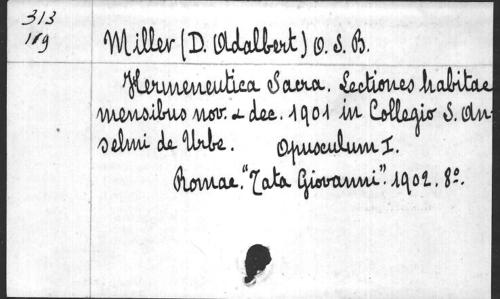 313
189
Miller (D. Adalbert) O. S. B.
Hermeneutica Sacra. Lectiones habitae
mensibus nov. & dec. 1901 in Collegio S. An-
selmi de Urbe. Opusculum I.
Romae. "Tata Giovanni". 1902. 8º.